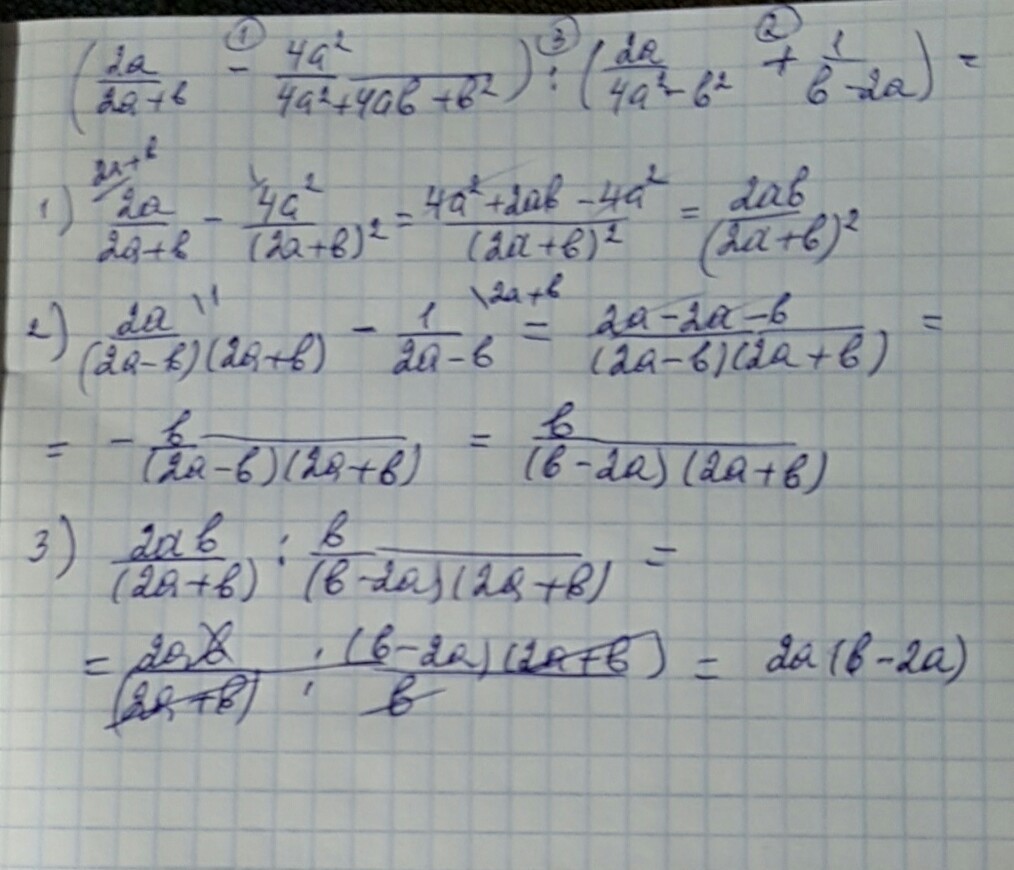 (2a/(2a+b) ① - 4a²/(4a²+4ab+b²)) ③ : (2a/(4a²-b²) ② + 1/(b-2a)) =
1) 2a/(2a+b) \2a+b - 4a²/(2a+b)² = (4a²+2ab-4a²)/(2a+b)² = 2ab/(2a+b)²
2) 2a/((2a-b)(2a+b)) \1 - 1/(2a-b) \2a+b = (2a-2a-b)/((2a-b)(2a+b)) =
= - b/((2a-b)(2a+b)) = b/((b-2a)(2a+b))
3) 2ab/(2a+b) : b/((b-2a)(2a+b)) =
= 2ab/(2a+b) · (b-2a)(2a+b)/b = 2a(b-2a)